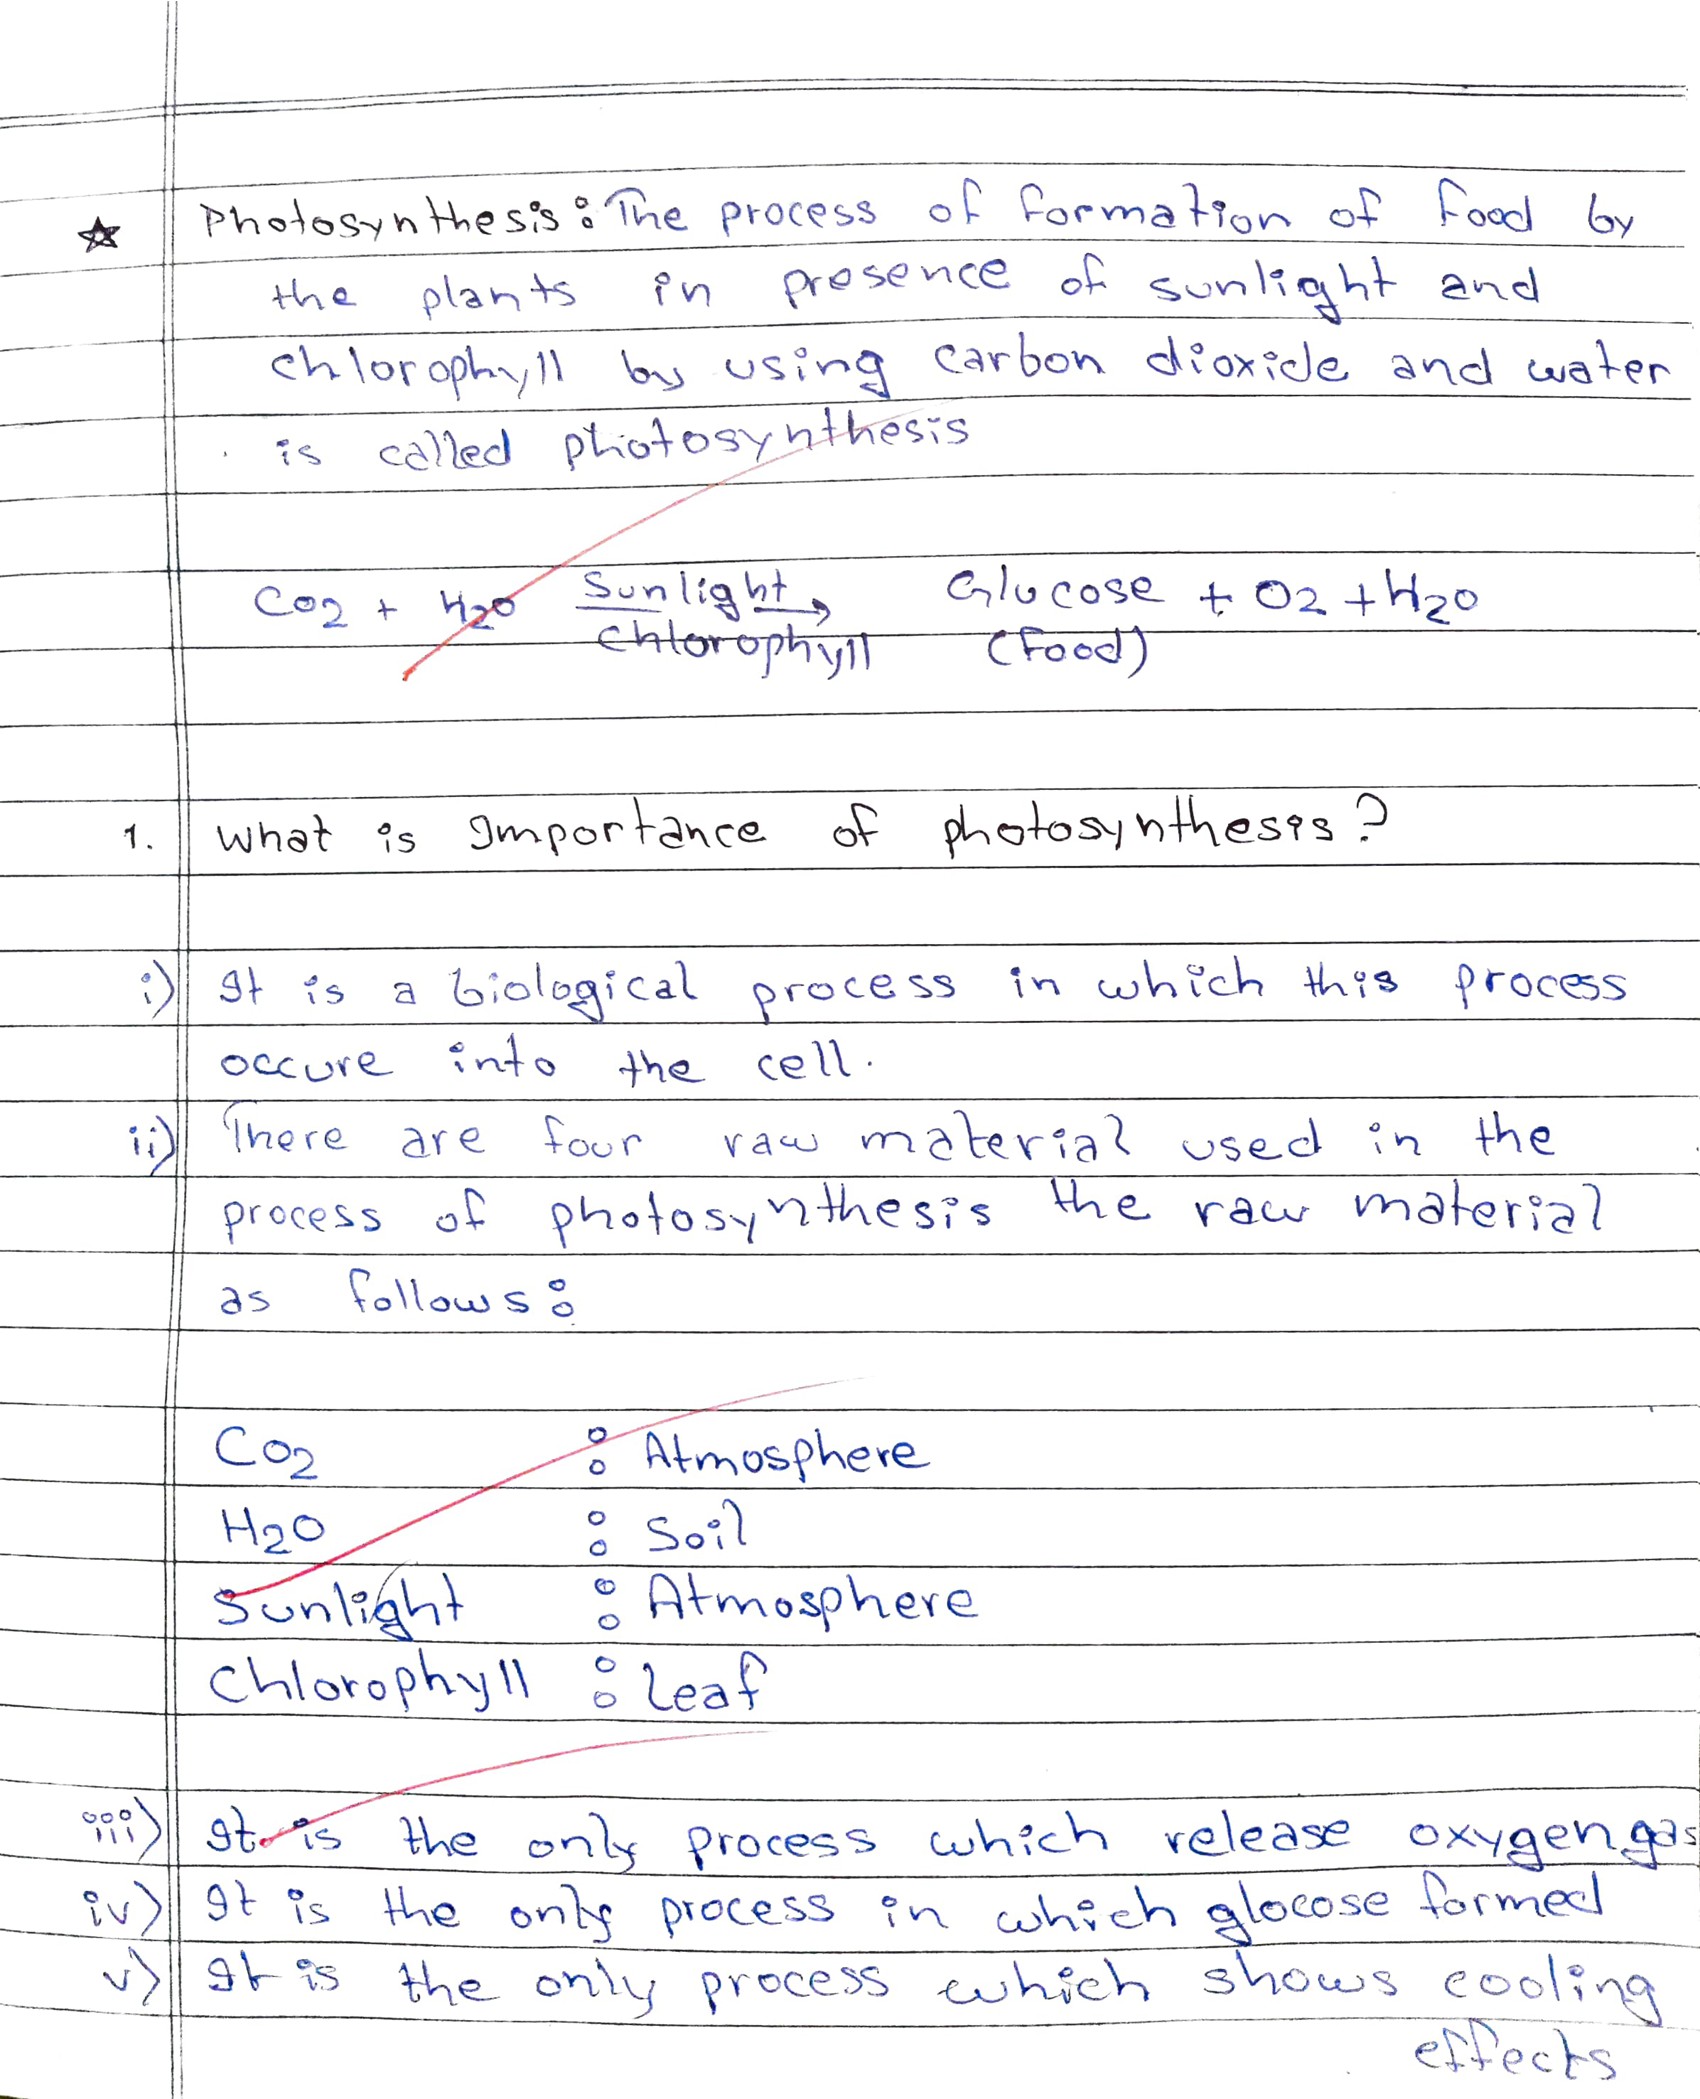 ☆ Photosynthesis: The process of formation of food by
the plants in presence of sunlight and
chlorophyll by using carbon dioxide and water
is called photosynthesis
CO2 + H2O Sunlight → Glucose + O2 + H2O
Chlorophyll (food)
1. What is Importance of photosynthesis?
i) It is a biological process in which this process
occure into the cell.
ii) There are four raw material used in the
process of photosynthesis the raw material
as follows:
CO2 : Atmosphere
H2O : Soil
Sunlight : Atmosphere
Chlorophyll : Leaf
iii) It is the only process which release oxygen gas
iv) It is the only process in which glocose formed
v) It is the only process which shows cooling
effects